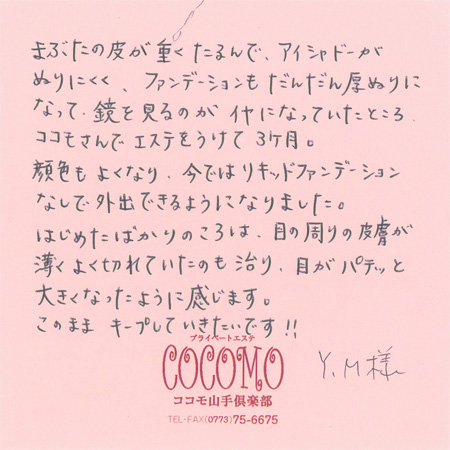 まぶたの皮が重くたるんで、アイシャドーが
ぬりにくく、ファンデーションもだんだん厚ぬりに
なって、鏡を見るのがイヤになっていたところ、
ココモさんでエステをうけて3ヶ月。
顔色もよくなり、今ではリキッドファンデーション
なしで外出できるようになりました。
はじめたばかりのころは、目の周りの皮膚が
薄くよく切れていたのも治り、目がパチッと
大きくなったように感じます。
このまま キープしていきたいです!!
プライベートエステ
COCOMO
ココモ山手倶楽部
TEL・FAX(0773)75-6675
Y.M様